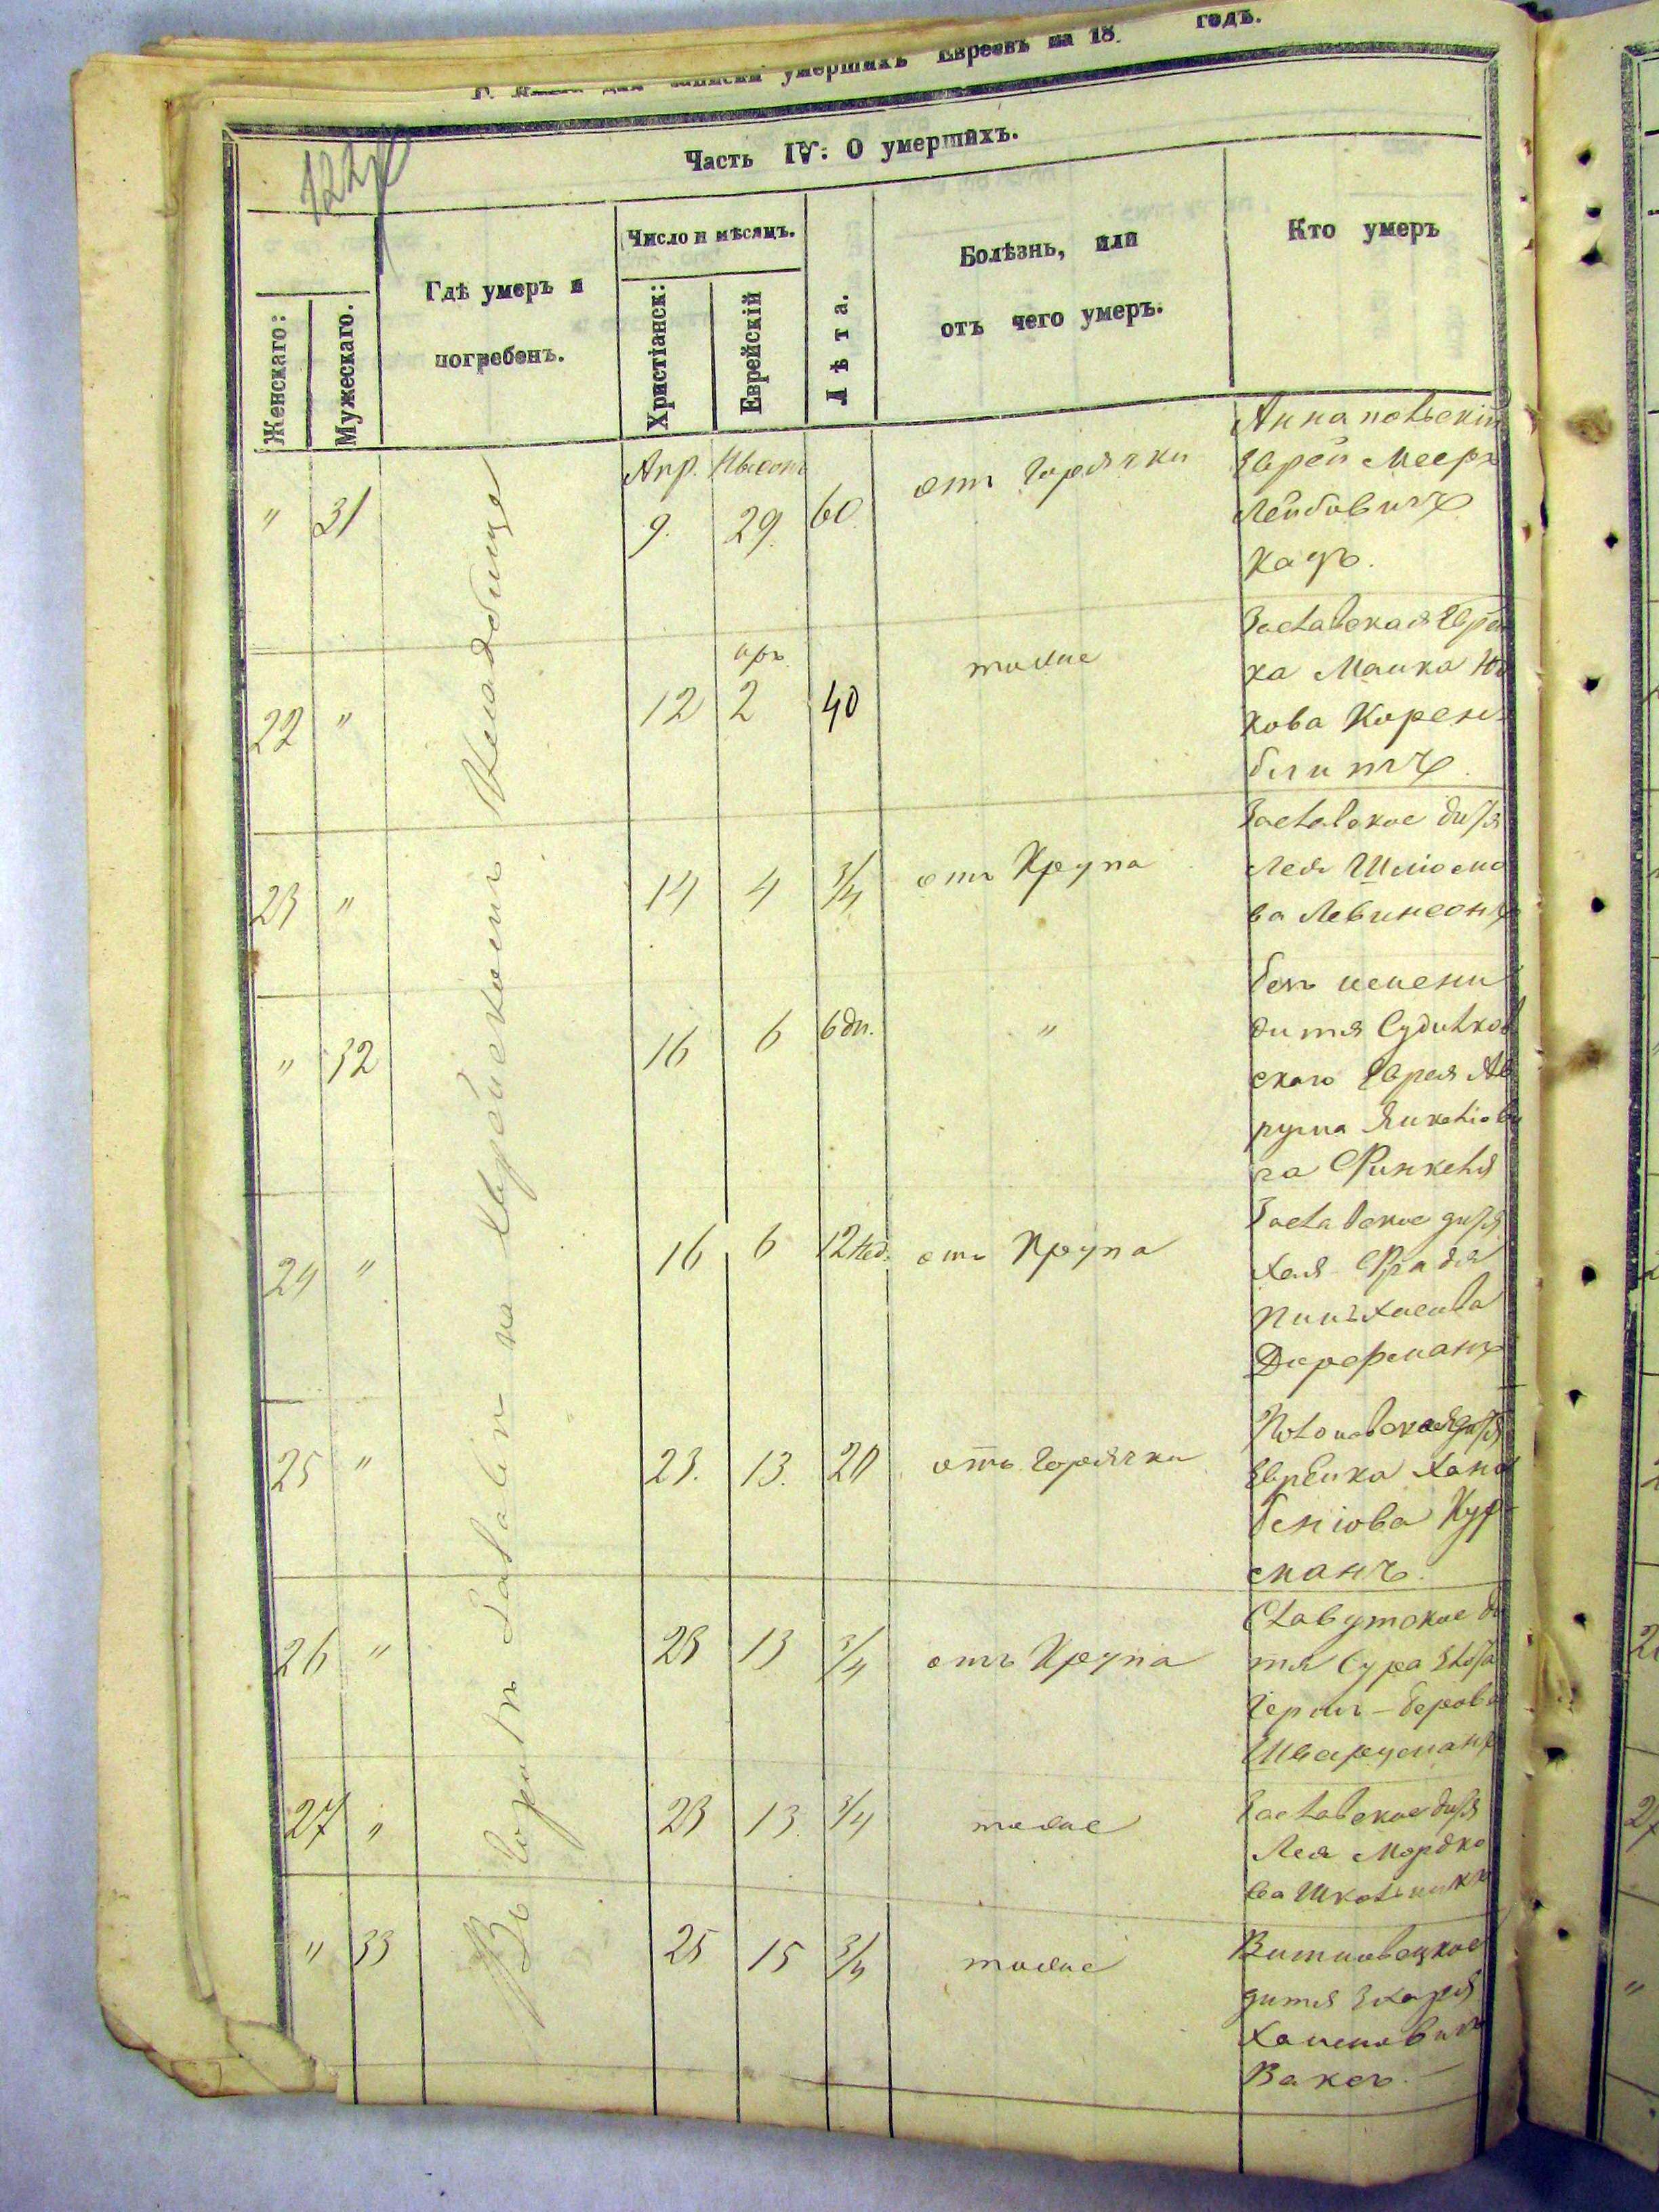 умершихъ Евреевъ на 18 годъ.
Часть IV: О умершихъ.
Женскаго:
Мужескаго.
Гдѣ умеръ и
погребенъ.
Число и мѣсяцъ.
Христіанск:
Еврейскій
Лѣта.
Болѣзнь, или
отъ чего умеръ.
Кто умеръ
Въ городѣ Заславѣ на Еврейскомъ Кладбище
" 31 Апр. 9. 29. 60 отъ Горячки
Еврей Мееръ
Лейбовичъ
Кацъ.
22 " 12 2 40 тоже
Заславская Еврей
ка Малка
кова Корен
блитъ
23 " 14 4 3/4 отъ Крупа
Заславское дитя
Лея Шлиомо
ва Левинсонъ
" 32 16 6 6 дн. "
безъ имени
дитя Судилков
скаго Еврея Ав
рума
ча Финкеля
24 " 16 6 12 нед. отъ Крупа
Заславское дитя
Хая Фрадя
Пинхасова
Дорфманъ
25 " 23. 13. 20 отъ Горячки
Еврейка Хана
Бенiова
сманъ.
26 " 23 13 3/4 отъ Крупа
Славутское ди
тя Сура
Герш-Берова
Шварцманъ
27 " 23 13. 3/4 тоже
Заславское дитя
Лея Мордко
ва Школьникъ
" 33 25 15 3/4 тоже
дитя
Хаимовичъ
Ваксъ.